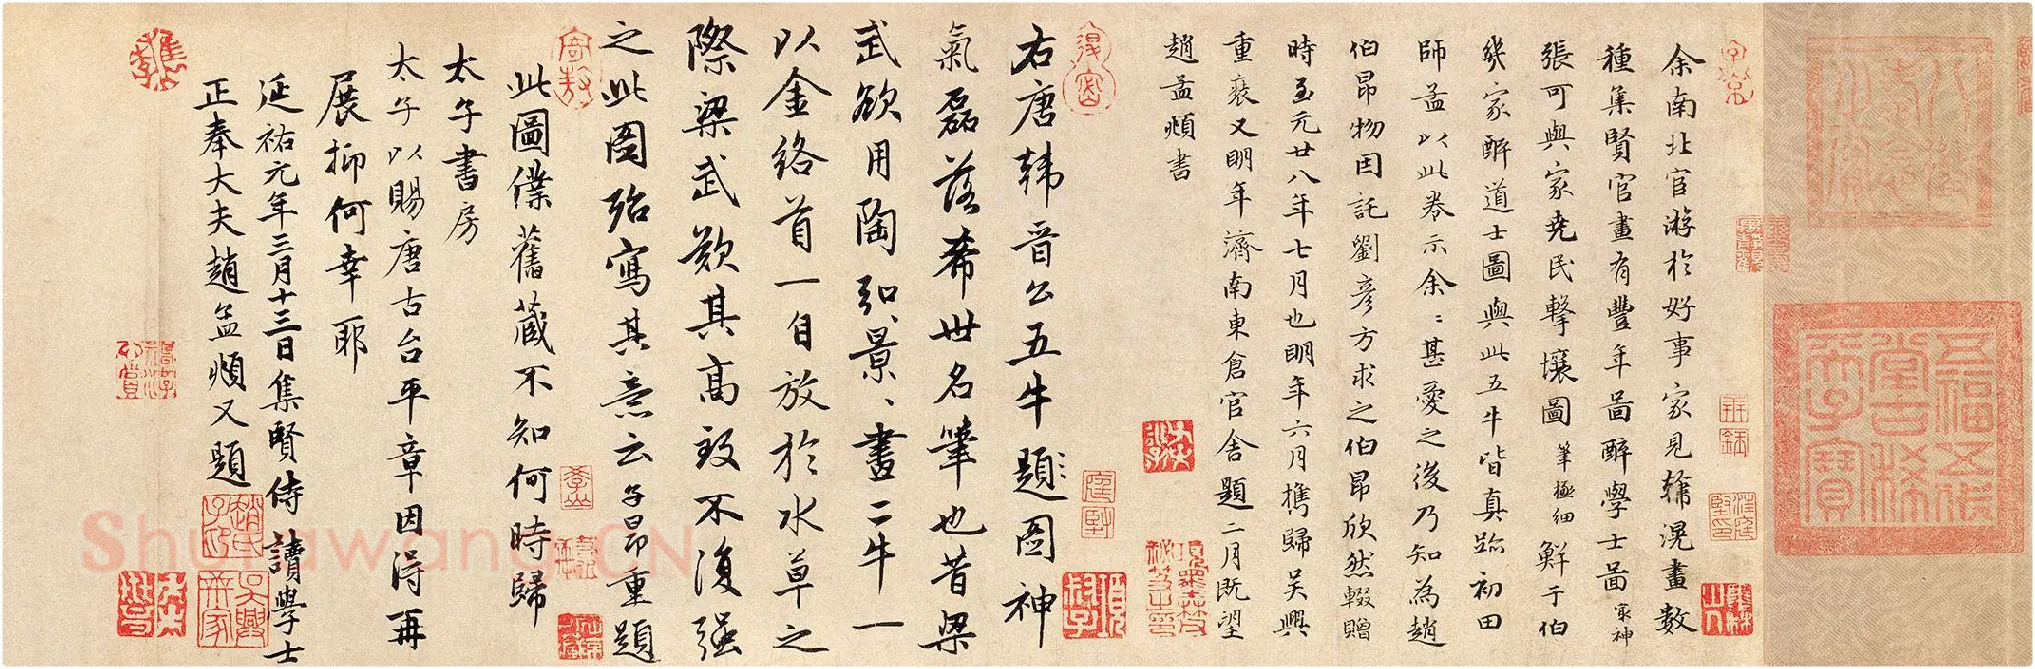 余南北官游於好事家見韓滉畫數
種集賢官畫有豐年啚醉學士啚最神
張可與家堯民擊壤圖筆極細鮮于伯
幾家醉道士圖與此五牛皆真跡初田
師孟以此卷示余余甚愛之後乃知為趙
伯昂物因託劉彥方求之伯昂欣然輟贈
時至元廿八年七月也明年六月攜歸吳興
重裝又明年濟南東倉官舍題二月既望
趙孟頫書
右唐韩晉公五牛圖神
氣磊落希世名筆也昔梁
武欲用陶弘景景畫二牛一
以金絡首一自放於水草之
際梁武歎其高致不復强
之此圖殆寫其意云子昂重題
此圖僕舊藏不知何時歸
太子書房
太子以賜唐古台平章因得再
展抑何幸耶
延祐元年三月十三日集賢侍讀學士
正奉大夫趙孟頫又題
五福五代
堂古稀
天子寶
八徵耄念之寶
趙氏子昂
Shufawang.CN